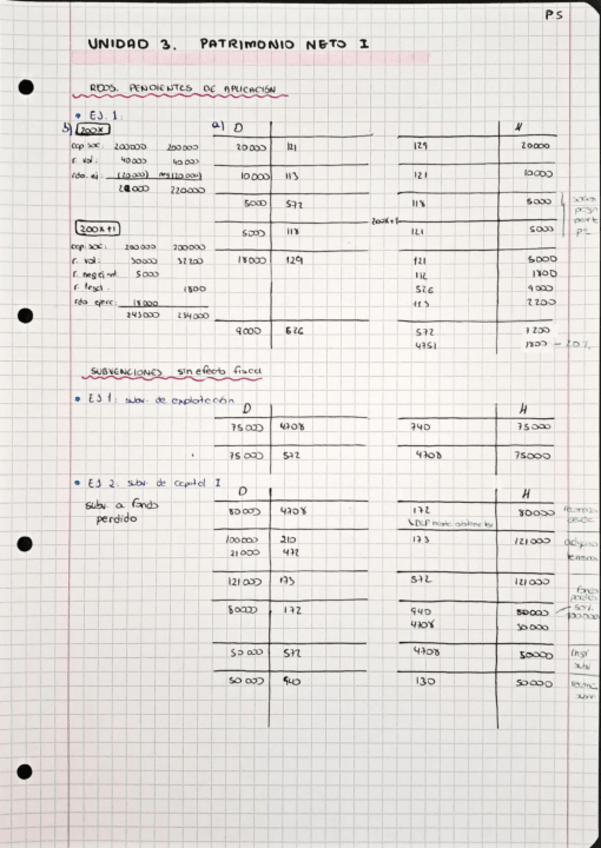 P.5
UNIDAD 3. PATRIMONIO NETO I
RDOS. PENDIENTES DE APLICACIÓN
• EJ. 1:
b) 200X
cap. soc: 200000 200000
r. vol: 40000 40000
rdo. ej: (20000)
220000
200X+1
cap. soc: 200000 200000
r. vol: 30000 37200
5000
r. legal: 1800
rdo ejerc: 18000
243000
a) D H
20000 121 129 20000
10000 113 121 10000
5000 572 118 5000
200X+1
5000 118 121 5000
18000 129 121 5000
112 1800
526 9000
113 2200
9000 526 572 7200
4751 1800 - 20%
SUBVENCIONES sin efecto fiscal
• EJ 1: subv. de explotación
D H
75000 4708 740 75000
75000 572 4708 75000
• EJ 2. subv. de capital I
subv. a fondo
perdido
D H
80000 4708 172 80000
100000 210 173 121000
21000 472
121000 173 572 121000
80000 172 940 50000
4708 30000
50000 572 4708 50000
50000 940 130 50000